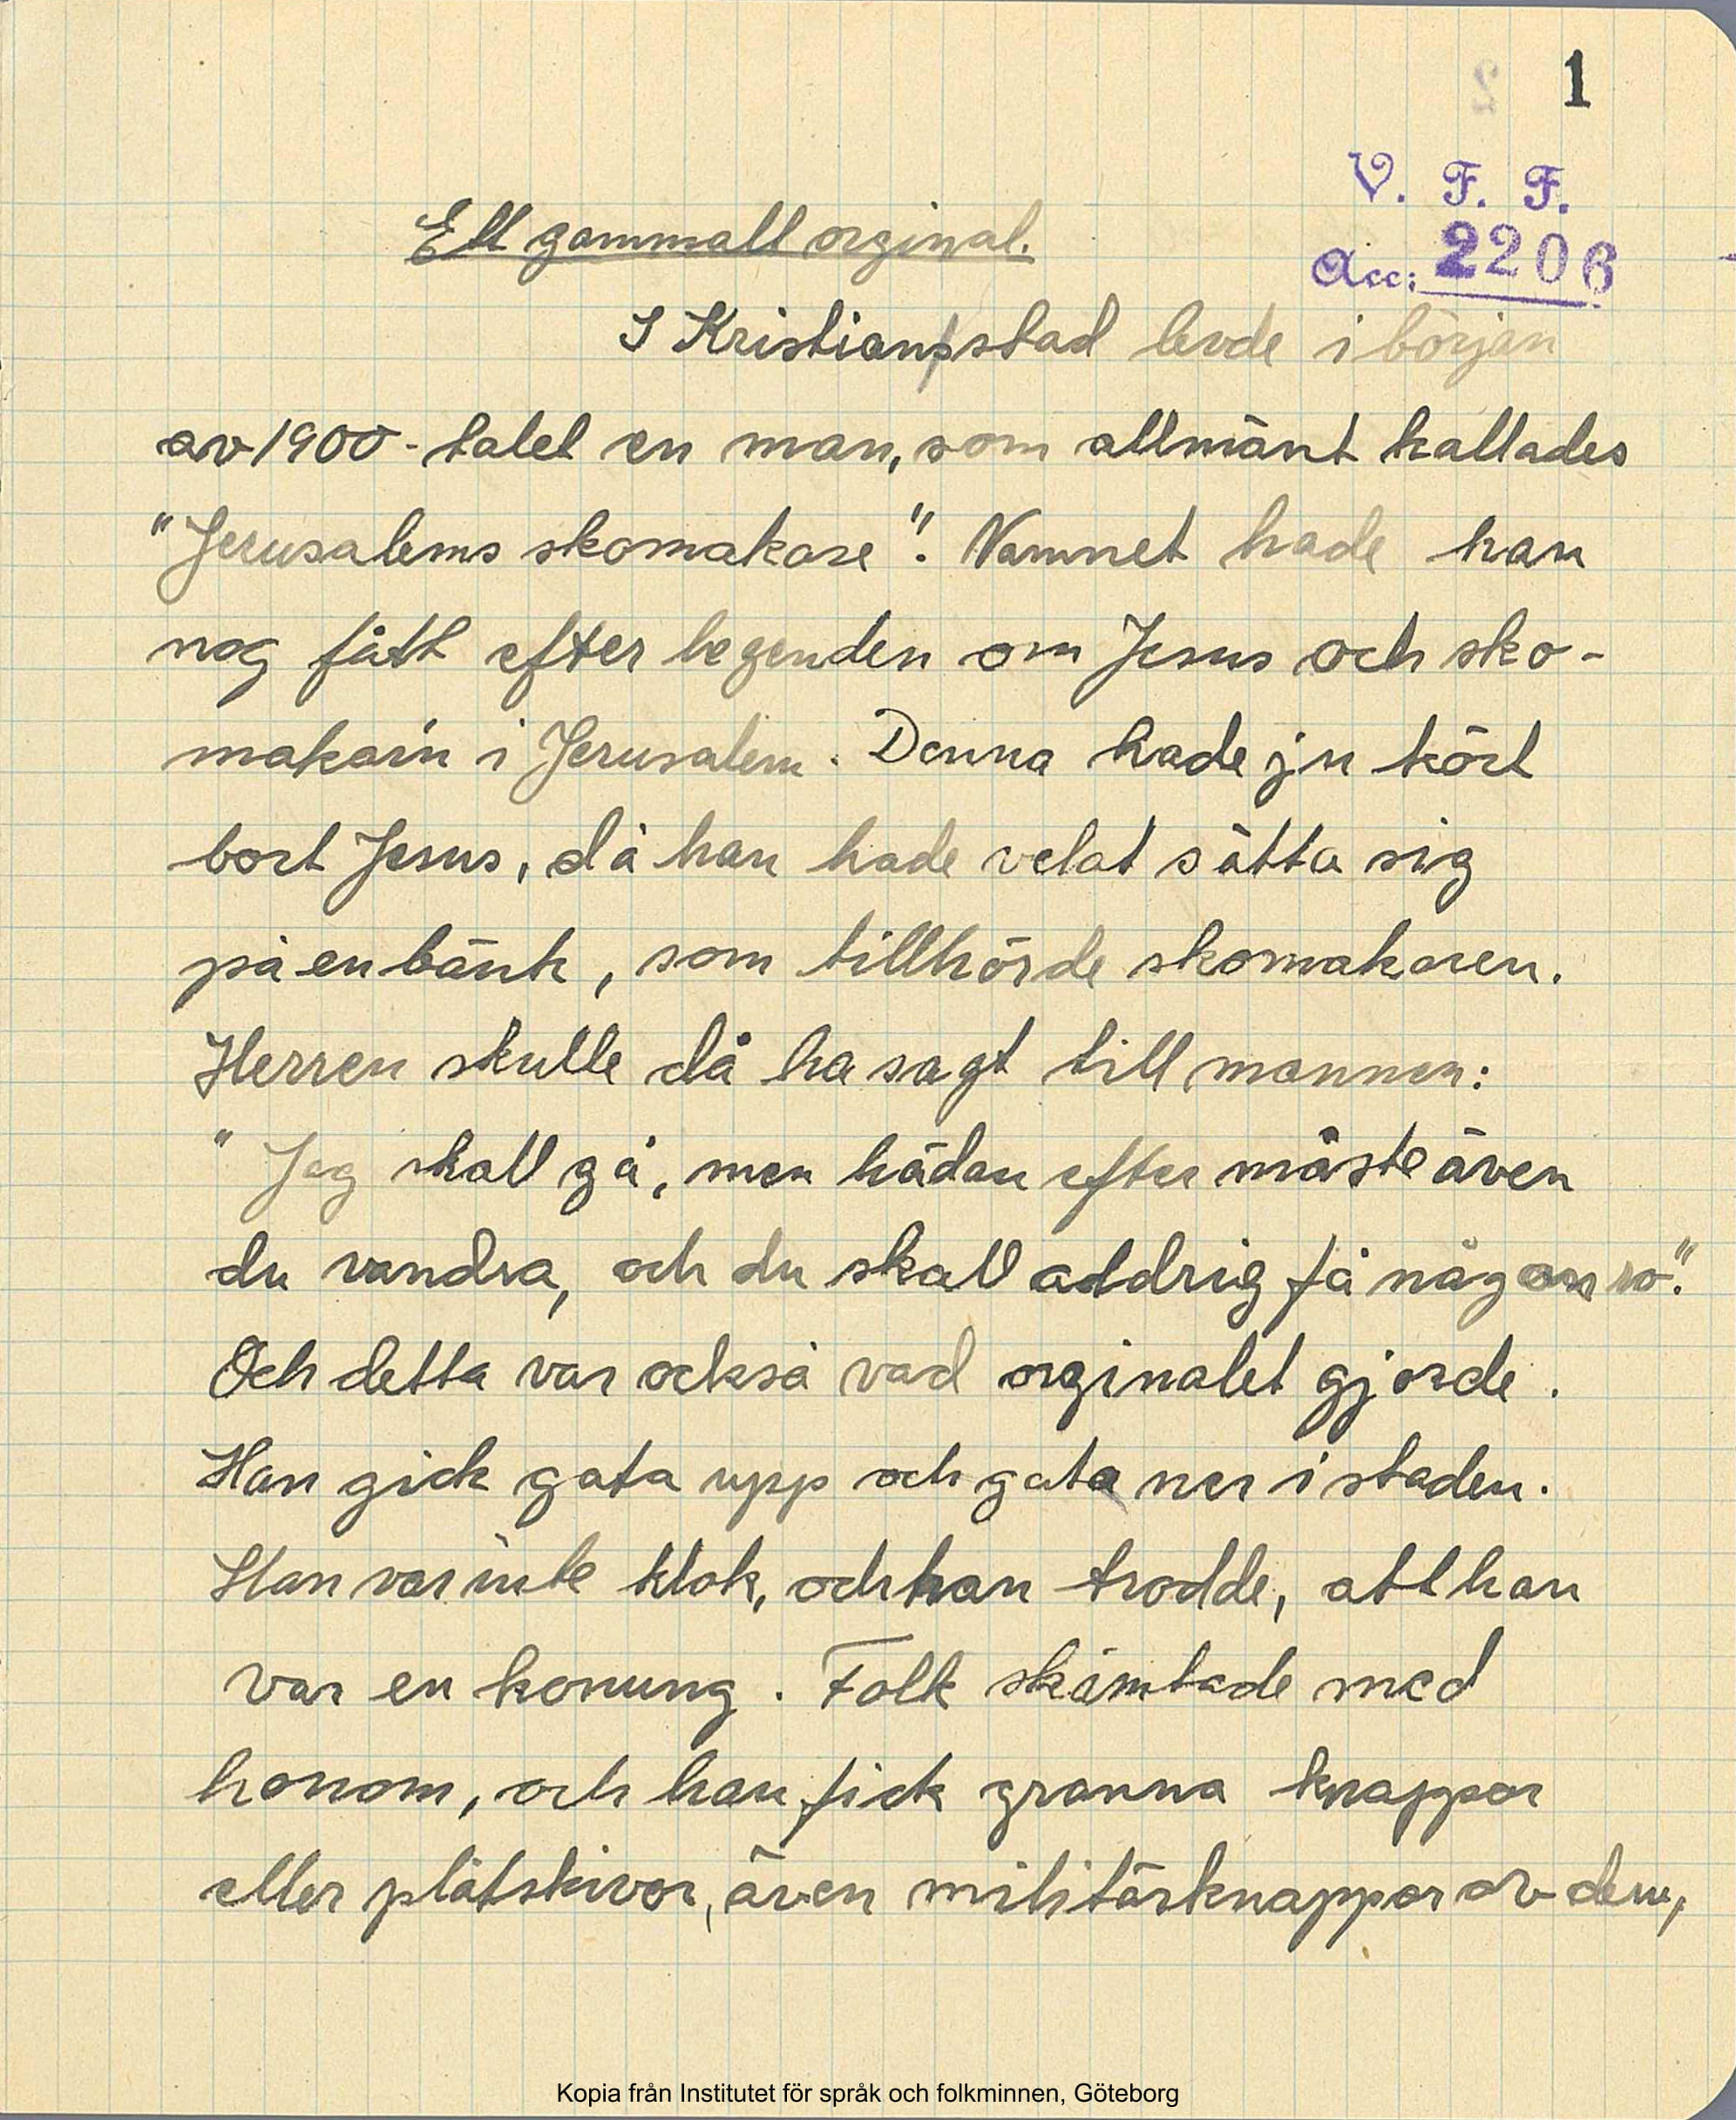 1
V. F. F.
Acc: 2206
Ett gammalt orginal.
I Kristianstad levde i början
av 1900-talet en man, som allmänt kallades
"Jerusalems skomakare". Namnet hade han
nog fått efter legenden om Jesus och sko-
makar'n i Jerusalem. Denna hade ju kört
bort Jesus, då han hade velat sätta sig
på en bänk, som tillhörde skomakaren.
Herren skulle då ha sagt till mannen:
"Jag skall gå, men hädan efter måste även
du vandra, och du skall aldrig få någon ro".
Och detta var också vad orginalet gjorde.
Han gick gata upp och gata ner i staden.
Han var inte klok, och han trodde, att han
var en konung. Folk skämtade med
honom, och han fick granna knappar
eller plåtskivor, även militärknappar av dem,
Kopia från Institutet för språk och folkminnen, Göteborg